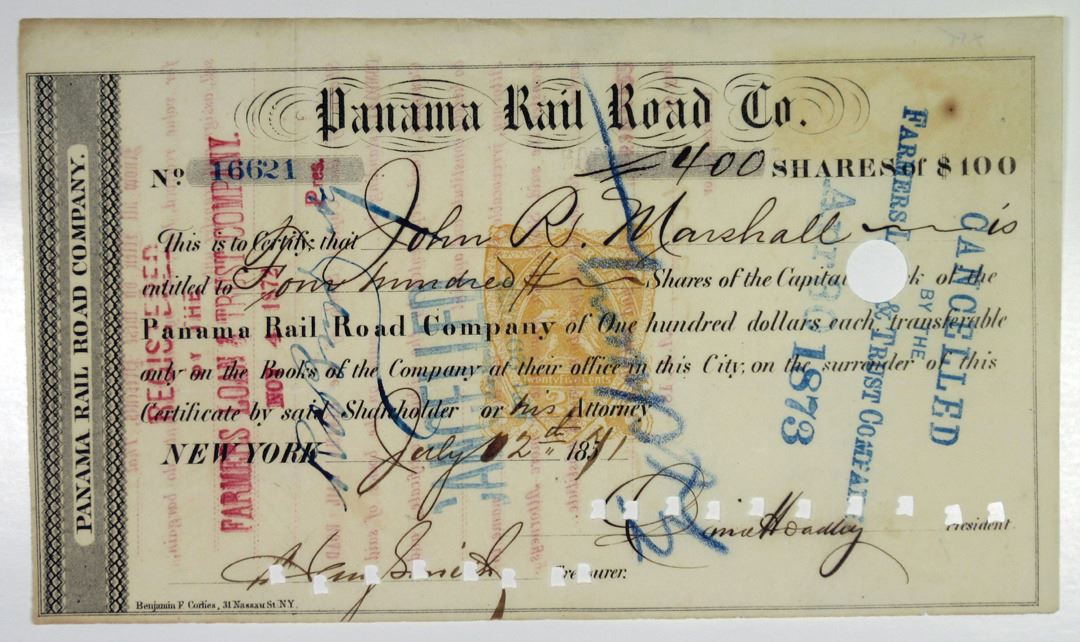 Panama Rail Road Co.
No 16621 400 SHARES of $100
This is to Certify that John B. Marshall is
entitled to Four hundred Shares of the Capital k of the
Panama Rail Road Company of One hundred dollars each, transferable
only on the Books of the Company at their office in this City, on the surrender of this
Certificate by said Shareholder or his Attorney
NEW YORK July 12th 1871
President.
Treasurer.
Benjamin F Corlies, 31 Nassau St NY.
PANAMA RAIL ROAD COMPANY.
REGISTERED
BY THE
FARMERS LOAN & TRUST COMPANY.
NOV 4 1872
Pres.
CANCELLED
Twenty Five Cents
CANCELLED
BY THE
FARMERS L & TRUST COMPAN
1873